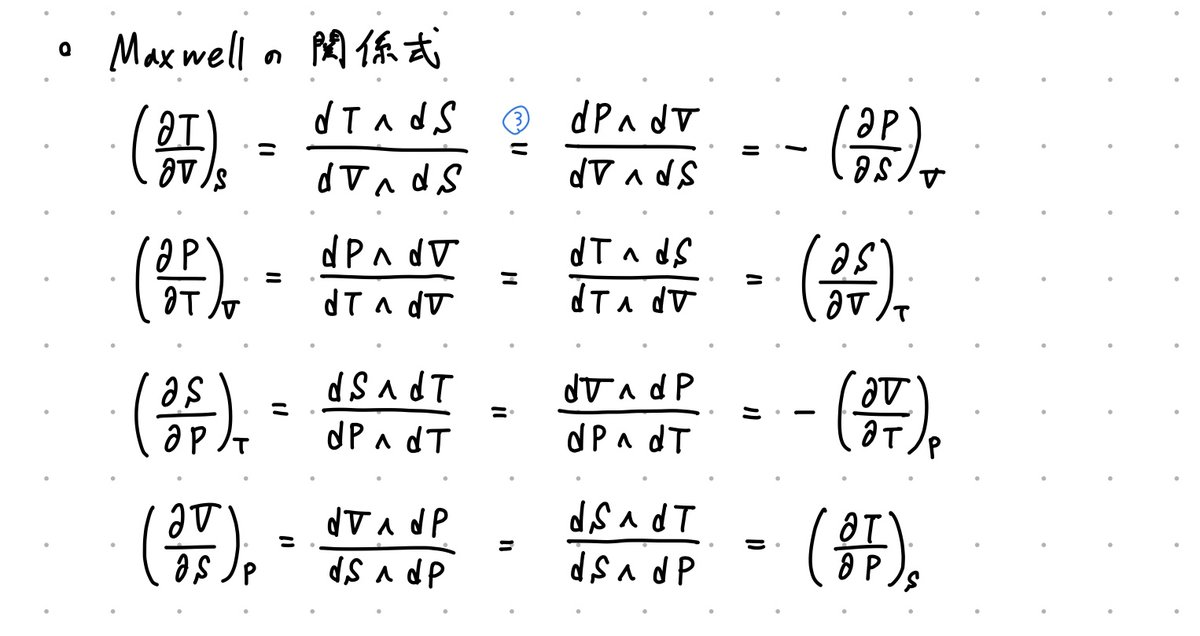 。Maxwell の 関係式
(∂T/∂V)_S = (dT∧dS)/(dV∧dS) ③= (dP∧dV)/(dV∧dS) = -(∂P/∂S)_V
(∂P/∂T)_V = (dP∧dV)/(dT∧dV) = (dT∧dS)/(dT∧dV) = (∂S/∂V)_T
(∂S/∂P)_T = (dS∧dT)/(dP∧dT) = (dV∧dP)/(dP∧dT) = -(∂V/∂T)_P
(∂V/∂S)_P = (dV∧dP)/(dS∧dP) = (dS∧dT)/(dS∧dP) = (∂T/∂P)_S